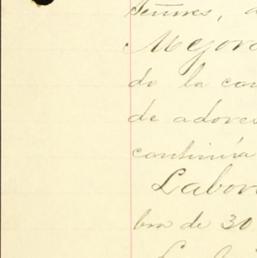 Señores,
Mejor
do la com
de adores
continúa
Labor
bra de 30